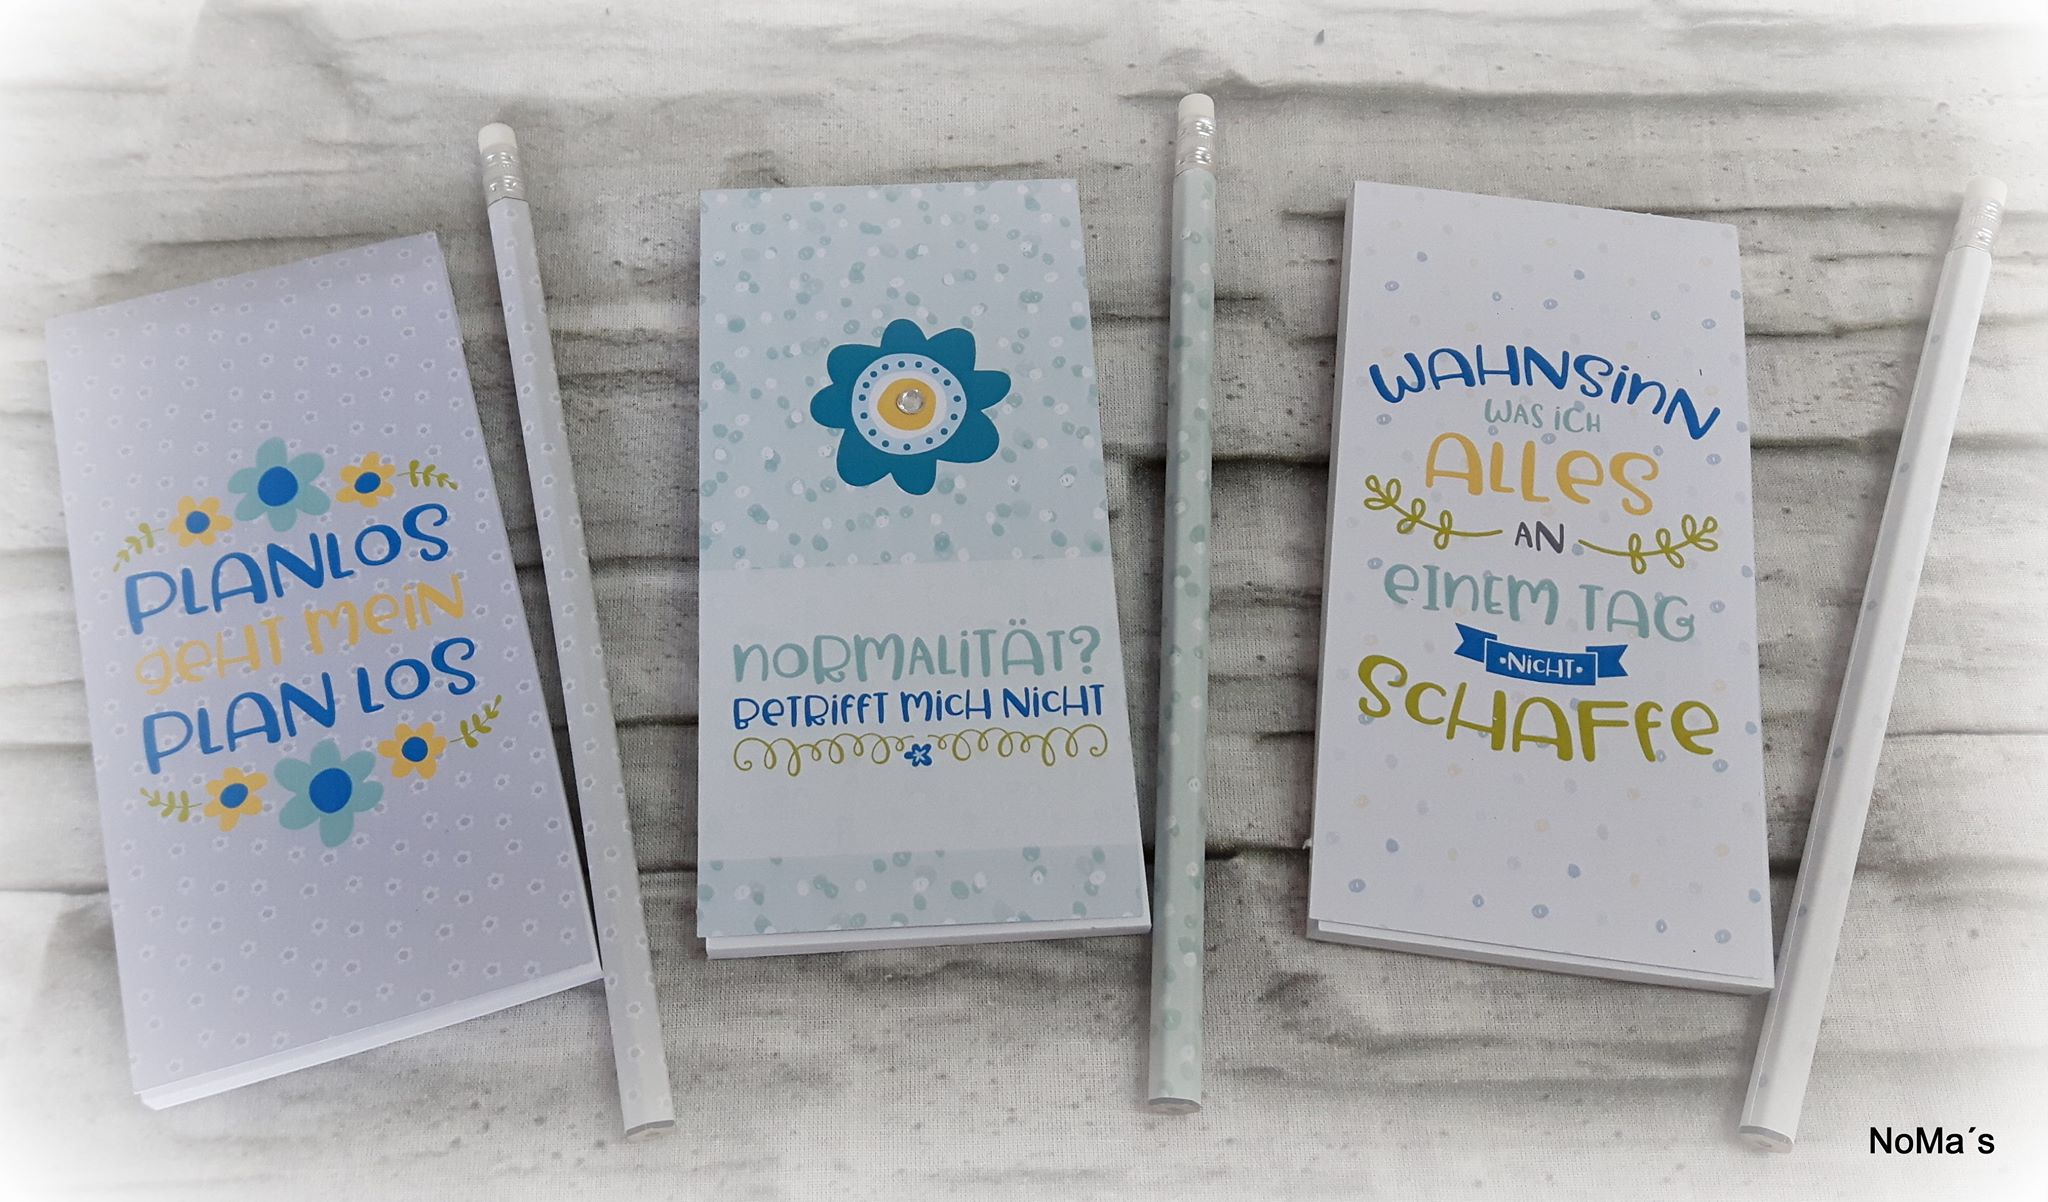 PLANLOS
geht mein
PLAN LOS
NORMALITÄT?
BETRIFFT MICH NICHT
WAHNSINN
WAS ICH
ALLES
AN
EINEM TAG
•NICHT•
SCHAFFE
NoMa´s